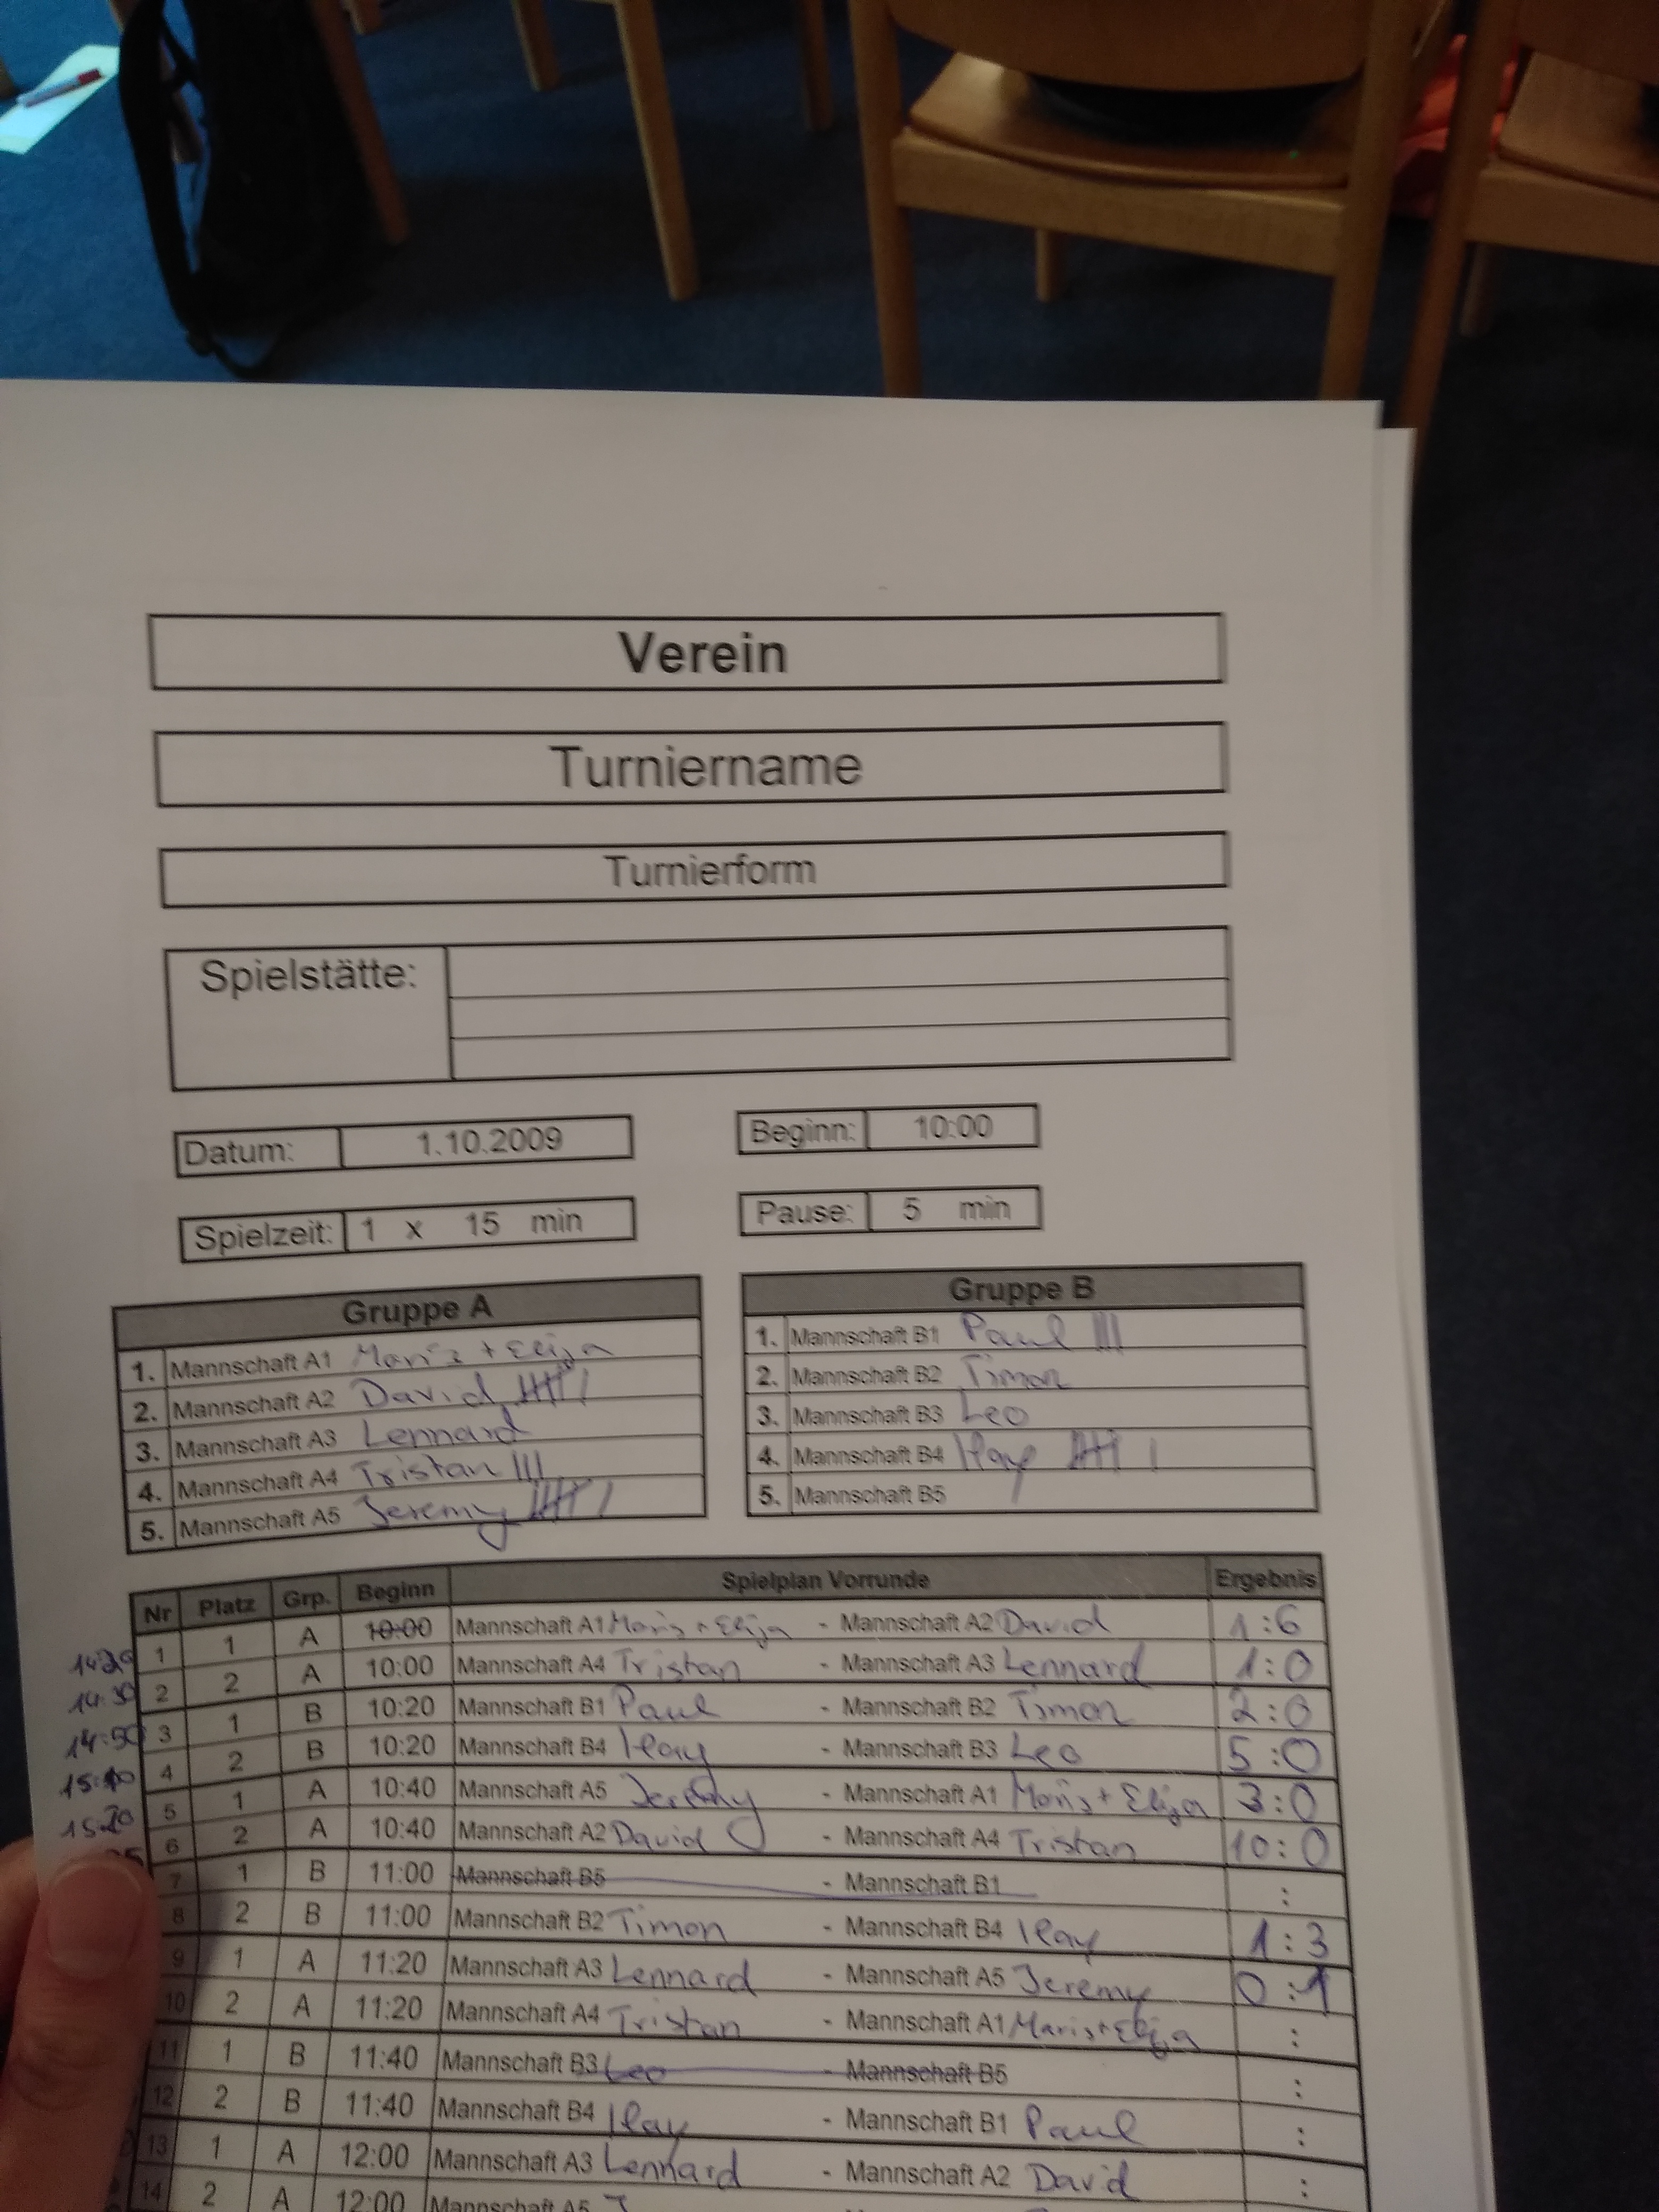 Verein
Turniername
Turnierform
Spielstätte:
Datum: 1.10.2009 Beginn: 10:00
Spielzeit: 1 x 15 min Pause: 5 min
Gruppe A
1. Mannschaft A1 Moris + Elija
2. Mannschaft A2 David
3. Mannschaft A3 Lennard
4. Mannschaft A4 Tristan III
5. Mannschaft A5 Jeremy
Gruppe B
1. Mannschaft B1 Paul III
2. Mannschaft B2 Timon
3. Mannschaft B3 Leo
4. Mannschaft B4 Ilay
5. Mannschaft B5
Nr Platz Grp. Beginn Spielplan Vorrunde Ergebnis
1 1 A 10:00 Mannschaft A1 Moris + Elija - Mannschaft A2 David 1:6
14:20
2 2 A 10:00 Mannschaft A4 Tristan - Mannschaft A3 Lennard 1:0
14:30
3 1 B 10:20 Mannschaft B1 Paul - Mannschaft B2 Timon 2:0
14:50
4 2 B 10:20 Mannschaft B4 Ilay - Mannschaft B3 Leo 5:0
15:10
5 1 A 10:40 Mannschaft A5 Jeremy - Mannschaft A1 Moris + Elija 3:0
15:20
6 2 A 10:40 Mannschaft A2 David - Mannschaft A4 Tristan 10:0
7 1 B 11:00 Mannschaft B5 - Mannschaft B1 :
8 2 B 11:00 Mannschaft B2 Timon - Mannschaft B4 Ilay 1:3
9 1 A 11:20 Mannschaft A3 Lennard - Mannschaft A5 Jeremy 0:1
10 2 A 11:20 Mannschaft A4 Tristan - Mannschaft A1 Moris + Elija :
11 1 B 11:40 Mannschaft B3 Leo - Mannschaft B5 :
12 2 B 11:40 Mannschaft B4 Ilay - Mannschaft B1 Paul :
13 1 A 12:00 Mannschaft A3 Lennard - Mannschaft A2 David :
14 2 A 12:00 Mannschaft A5 :